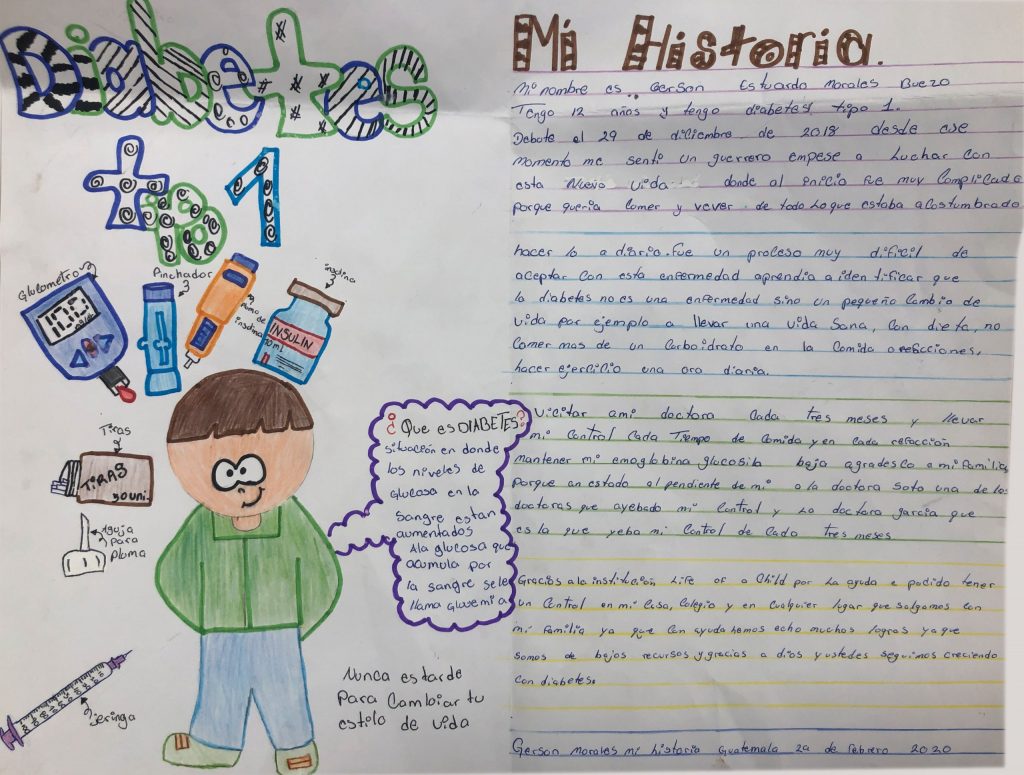 Diabetes
tipo 1
Glucometro
100
mg/dL
Pinchador
Pluma de
insulina
insulina
INSULIN
10 ml
Tiras
TiRAS
50 uni.
Aguja
Para
Pluma
jeringa
¿Que es DIABETES?
situación en donde
los niveles de
glucosa en la
Sangre estan
aumentados
Ala glucosa que
acumula por
la sangre sele
llama Glucemia
Nunca estarde
Para Cambiar tu
estilo de vida
Mi Historia.
Mi nombre es Gerson Estuardo Morales Buezo
Tengo 12 años y tengo diabetes tipo 1.
Debote el 29 de diliciembre de 2018 desde ese
momento me sentó un guerrero empese a Luchar con
esta Nueva Vida donde al inicio fue muy Complicada
porque queria Comer y vever de todo Lo que estaba acostumbrado
hacer lo a diario. Fue un proceso muy dificil de
aceptar con esta enfermedad aprendia a identificar que
la diabetes no es una enfermedad sino un pequeño Cambio de
vida por ejemplo a llevar una vida Sana, Con dieta, no
Comer mas de un Carboidrato en la Comida o refacciones,
hacer ejercicio una ora diaria.
Vicitar ami doctora Cada tres meses y llevar
mi Control Cada Tiempo de Comida y en cada refaccion
mantener mi emoglobina glucosila baja agradesco a mi familia
Porque an estado al pendiente de mi a la doctora Soto una de las
doctoras que ayebado mi Control y La doctora garcia que
es la que yeba mi Control de Cada tres meses.
Gracias ala institucion Life of a Child por La ayuda e podido tener
un Control en mi Casa, Colegio y en Cualquier lugar que salgamos con
mi Familia ya que Con ayuda hemos echo muchos logros ya que
Somos de bajos recursos y gracias a dios y ustedes seguimos creciendo
con diabetes.
Gerson Morales mi historia Guatemala 29 de Febrero 2020